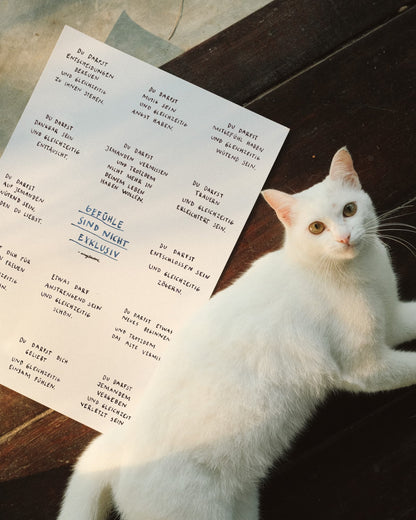 DU DARFST
ENTSCHEIDUNGEN
BEREUEN
UND GLEICHZEITIG
ZU IHNEN STEHEN.
DU DARFST
MUTIG SEIN
UND GLEICHZEITIG
ANGST HABEN.
DU DARFST
MITGEFÜHL HABEN
UND GLEICHZEITIG
WÜTEND SEIN.
DU DARFST
DANKBAR SEIN
UND GLEICHZEITIG
ENTTÄUSCHT.
DU DARFST
JEMANDEN VERMISSEN
UND TROTZDEM
NICHT MEHR IN
DEINEM LEBEN
HABEN WOLLEN.
DU DARFST
TRAUERN
UND GLEICHZEITIG
ERLEICHTERT SEIN.
DU DARFST
AUF JEMANDEN
WÜTEND SEIN,
DEN DU LIEBST.
GEFÜHLE
SIND NICHT
EXKLUSIV
DU DARFST
ENTSCHLOSSEN SEIN
UND GLEICHZEITIG
ZÖGERN.
DICH FÜR
FREUEN
GLEICHZEITIG
SEIN.
ETWAS DARF
ANSTRENGEND SEIN
UND GLEICHZEITIG
SCHÖN.
DU DARFST ETWAS
NEUES BEGINNEN
UND TROTZDEM
DAS ALTE VERMI
DU DARFST DICH
GELIEBT
UND GLEICHZEITIG
EINSAM FÜHLEN.
DU DARFST
JEMANDEM
VERGEBEN
UND GLEICHZEIT
VERLETZT SEIN